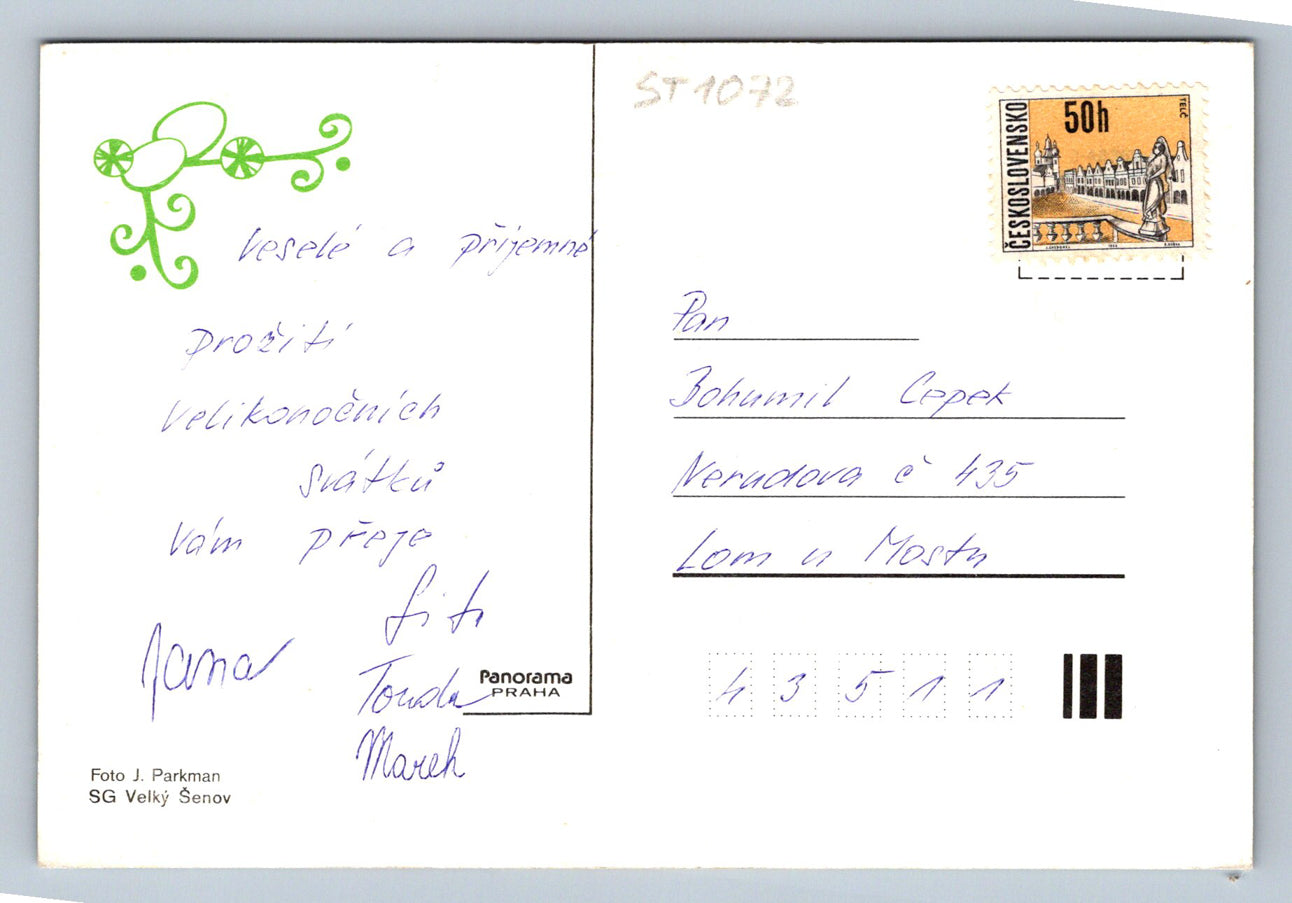 ST1072
ČESKOSLOVENSKO
50h
TELČ
Veselé a příjemné
prožití
velikonočních
svátků
Vám přeje
Jana
Tonda
Marek
Panorama
PRAHA
Foto J. Parkman
SG Velký Šenov
Pan
Bohumil Cepek
Nerudova č 435
Lom u Mostu
43511